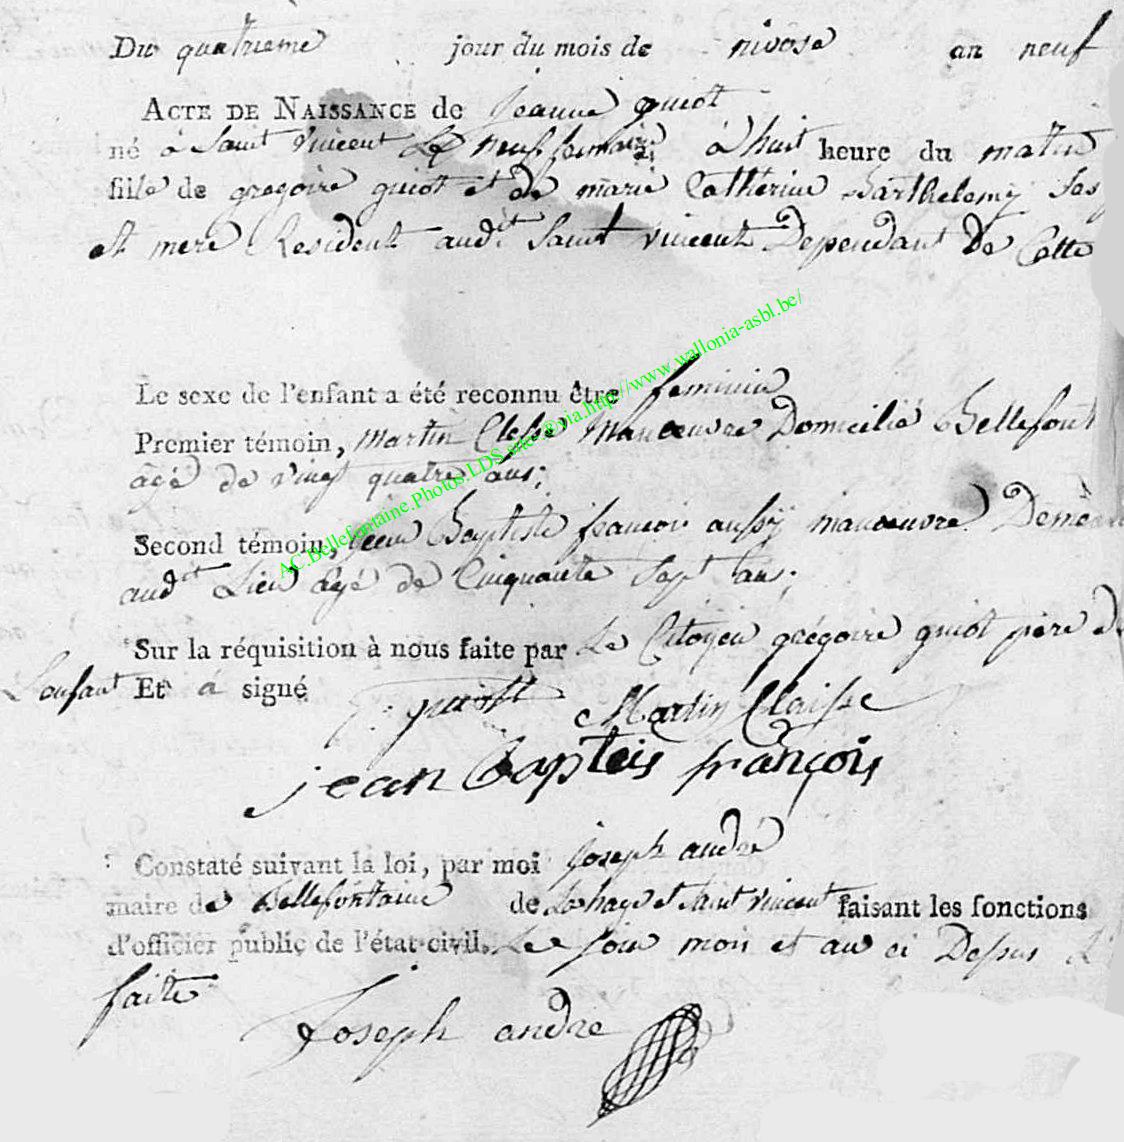 Du quatrieme jour du mois de nivôse an neuf
ACTE DE NAISSANCE de Jeanne guiot
né à Saint Vincent Le neuf frimaire à huit heure du matin
fille de gregoire guiot et de marie Catherine Barthelemy
et mere Resident audit Saint vincent Dependant de Cette
Le sexe de l'enfant a été reconnu être feminin
Premier témoin, Martin Clesse Manoeuvre Domicilié Bellefont
agé de vingt quatre ans;
Second témoin, Jean Baptiste françois aussy manoeuvre
audit Lieu agé de Cinquante Sept ans;
Sur la réquisition à nous faite par Le Citoyen grégoire guiot père de
L'enfant Et à signé
guiot Martin Claisse
jean bapteis françois
Constaté suivant la loi, par moi Joseph andré
maire de Bellefontaine de Lahage et Saint Vincent faisant les fonctions
d'officier public de l'état civil. Le jour mois et an ci Dessus
faite
Joseph andre
AC.Bellefontaine.Photos.LDS.site.&via.http://www.wallonia-asbl.be/